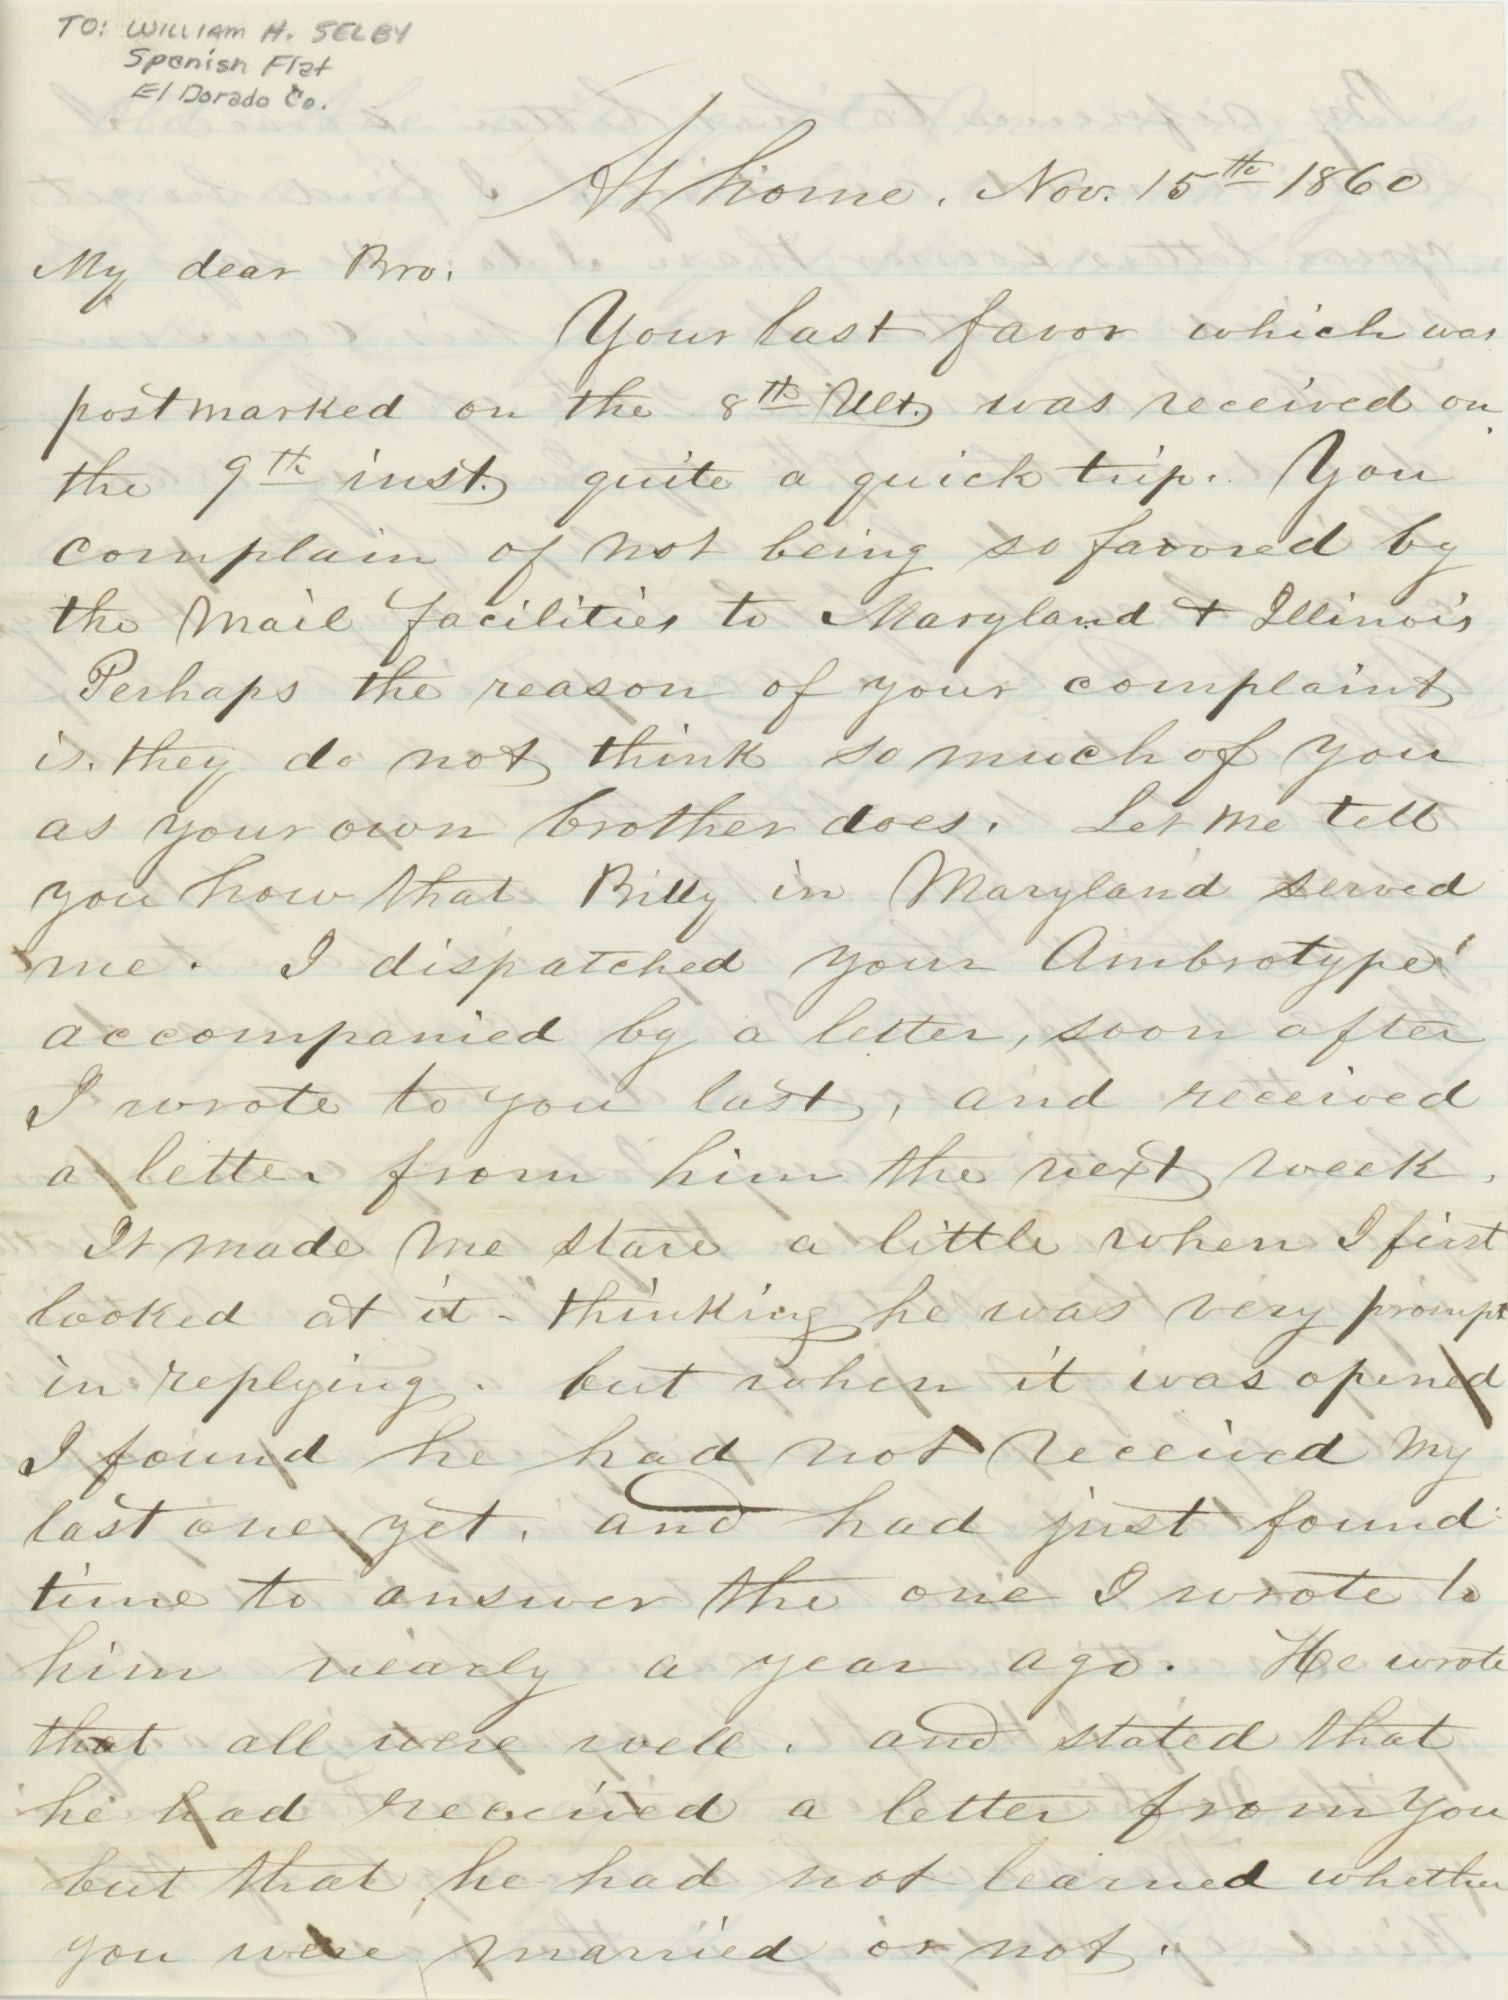 TO: WILLIAM H. SELBY
Spanish Flat
El Dorado Co.
At home, Nov. 15th 1860
My dear Bro.
Your last favor which was
postmarked on the 8th Ult. was received on
the 9th inst. quite a quick trip. You
complain of not being so favored by
the Mail facilities to Maryland & Illinois
Perhaps the reason of your complaint
is, they do not think so much of you
as your own brother does. Let me tell
you how that Billy in Maryland served
me. I dispatched your Ambrotype
accompanied by a letter, soon after
I wrote to you last, and received
a letter from him the next week.
It made me stare a little when I first
looked at it - thinking he was very prompt
in replying. but when it was opened
I found he had not received my
last one yet, and had just found
time to answer the one I wrote to
him nearly a year ago. He wrote
that all were well. and stated that
he had received a letter from you
but that he had not learned whether
you were married or not.